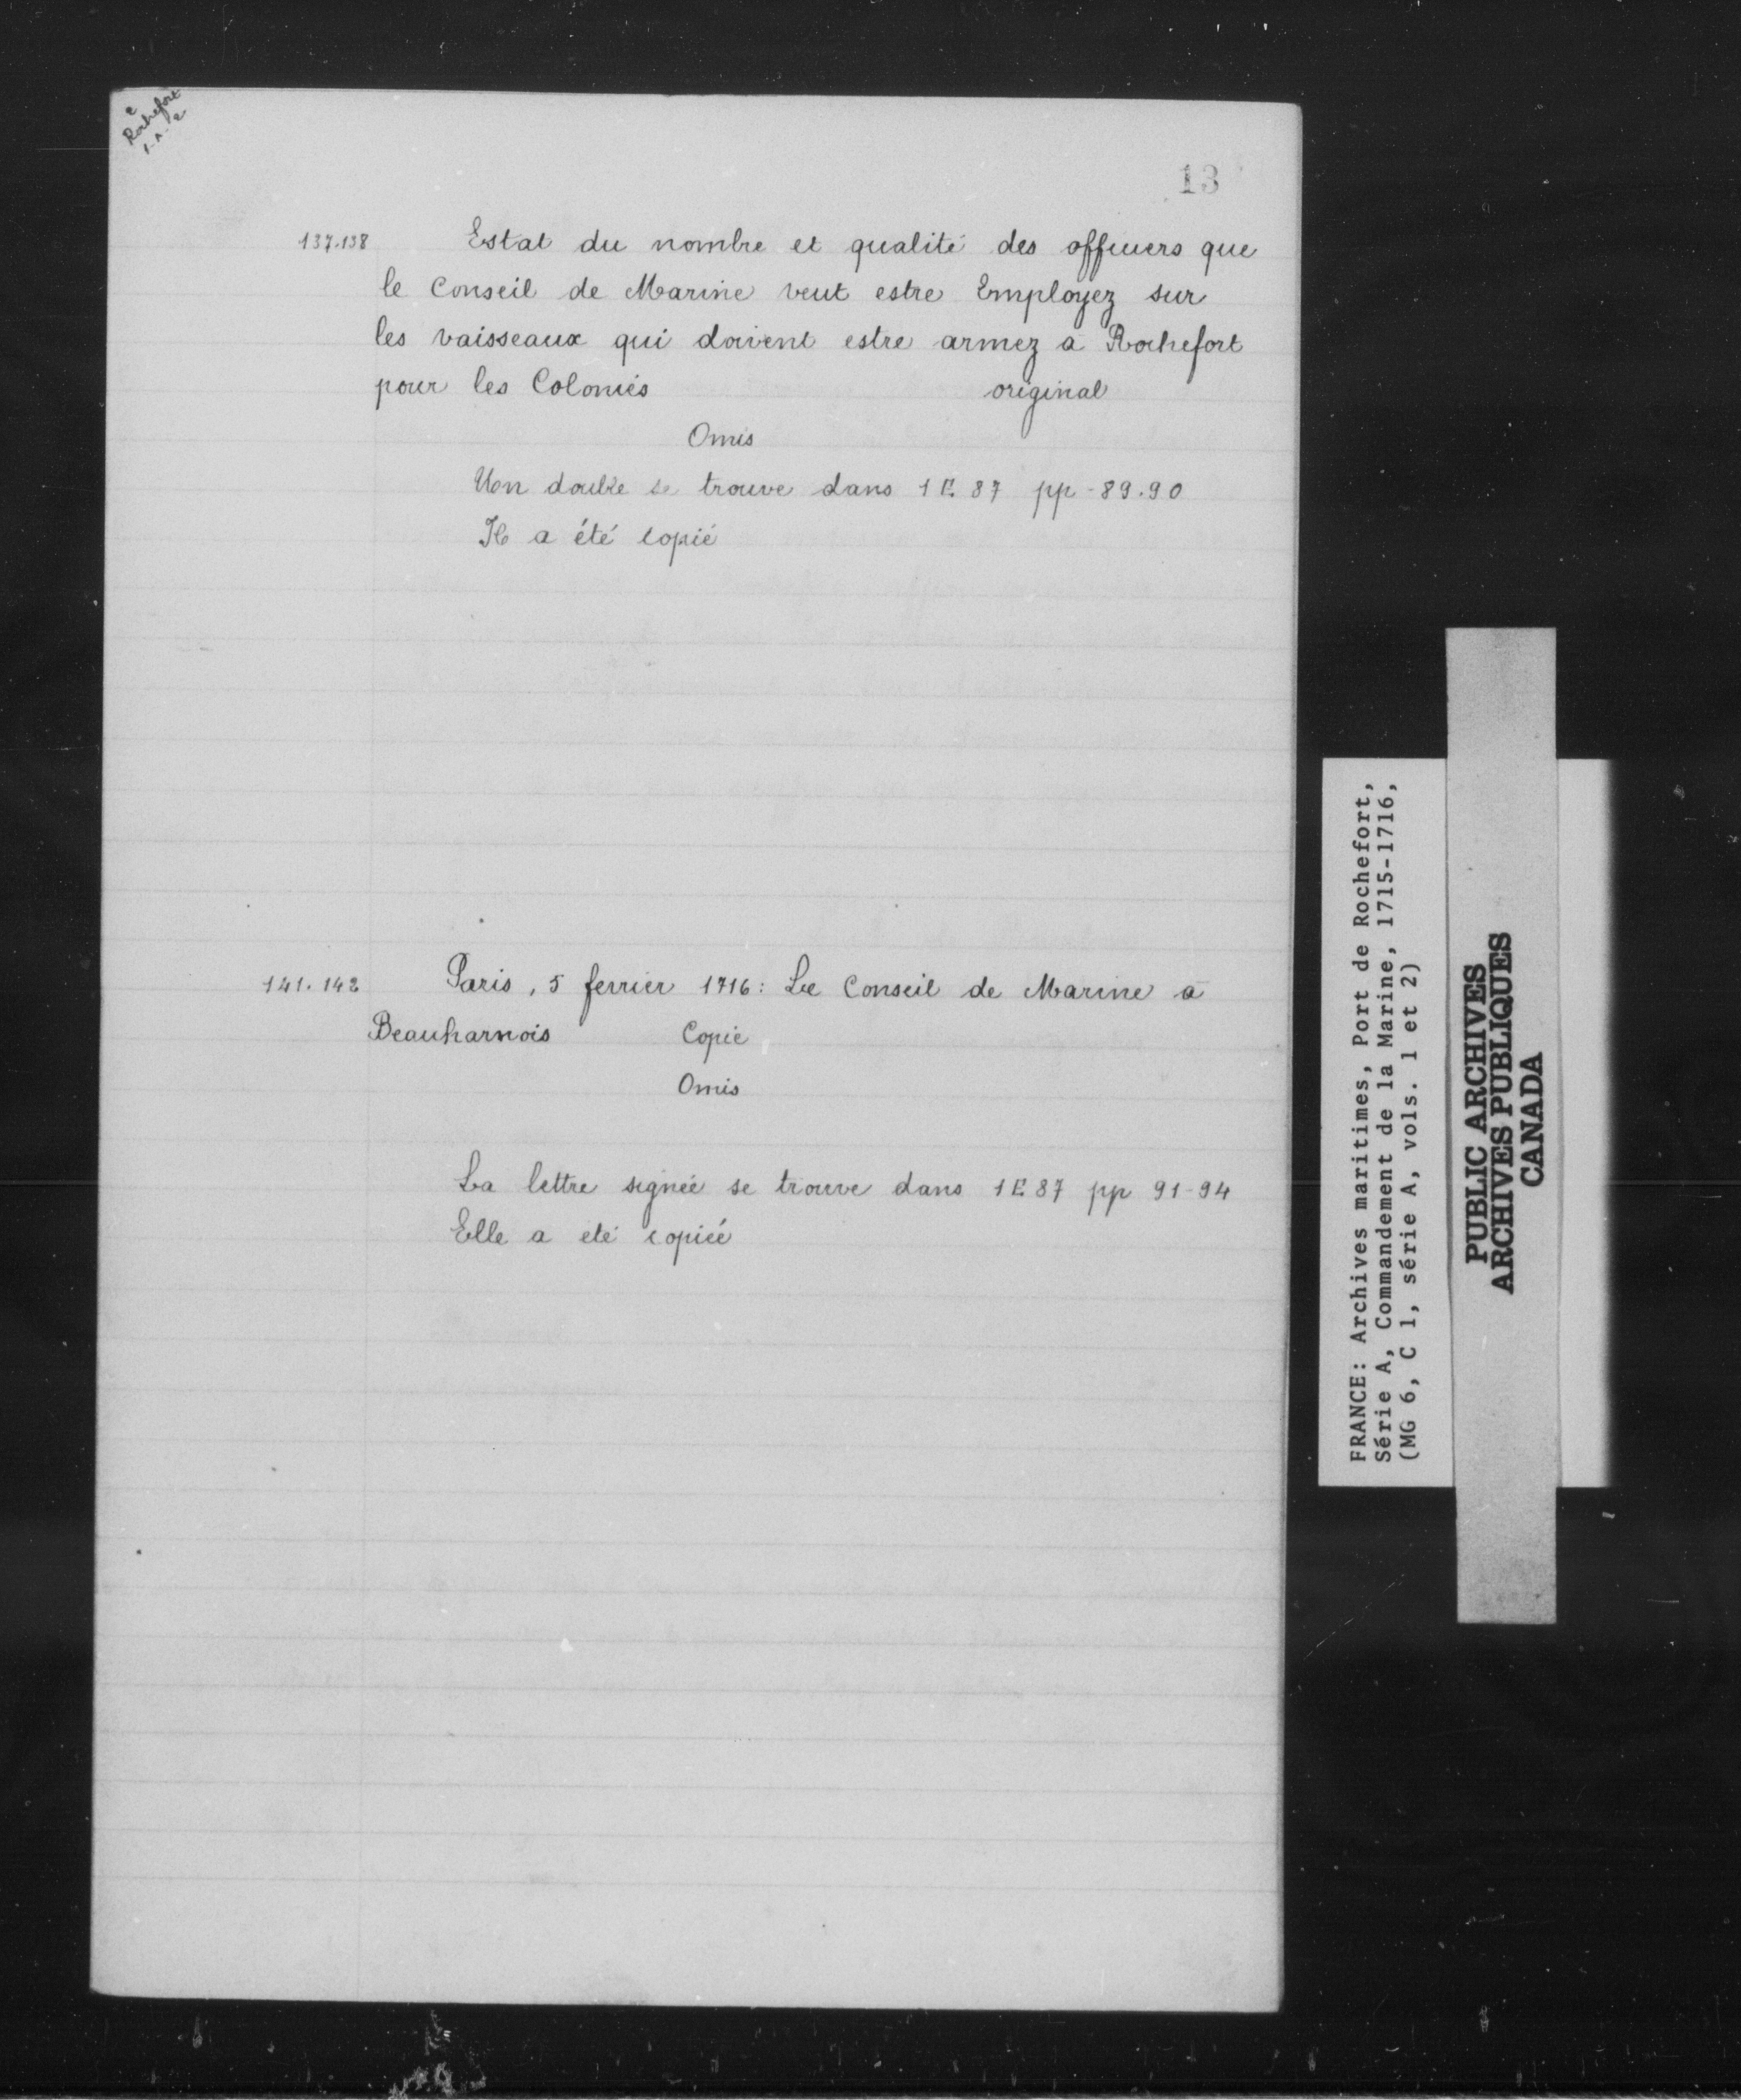 Rochefort
13
137.138 Estat du nombre et qualité des officiers que
le Conseil de Marine veut estre Employez sur
les vaisseaux qui doivent estre armez a Rochefort
pour les Colonies original
Omis
Un double se trouve dans 1 E 87 pp - 89.90
Il a été copié
141.142 Paris, 5 fevrier 1716: Le Conseil de Marine a
Beauharnois Copie
Omis
La lettre signée se trouve dans 1 E 87 pp 91-94
Elle a eté copiée
FRANCE: Archives maritimes, Port de Rochefort,
Série A, Commandement de la Marine, 1715-1716,
(MG 6, C 1, série A, vols. 1 et 2)
PUBLIC ARCHIVES
ARCHIVES PUBLIQUES
CANADA